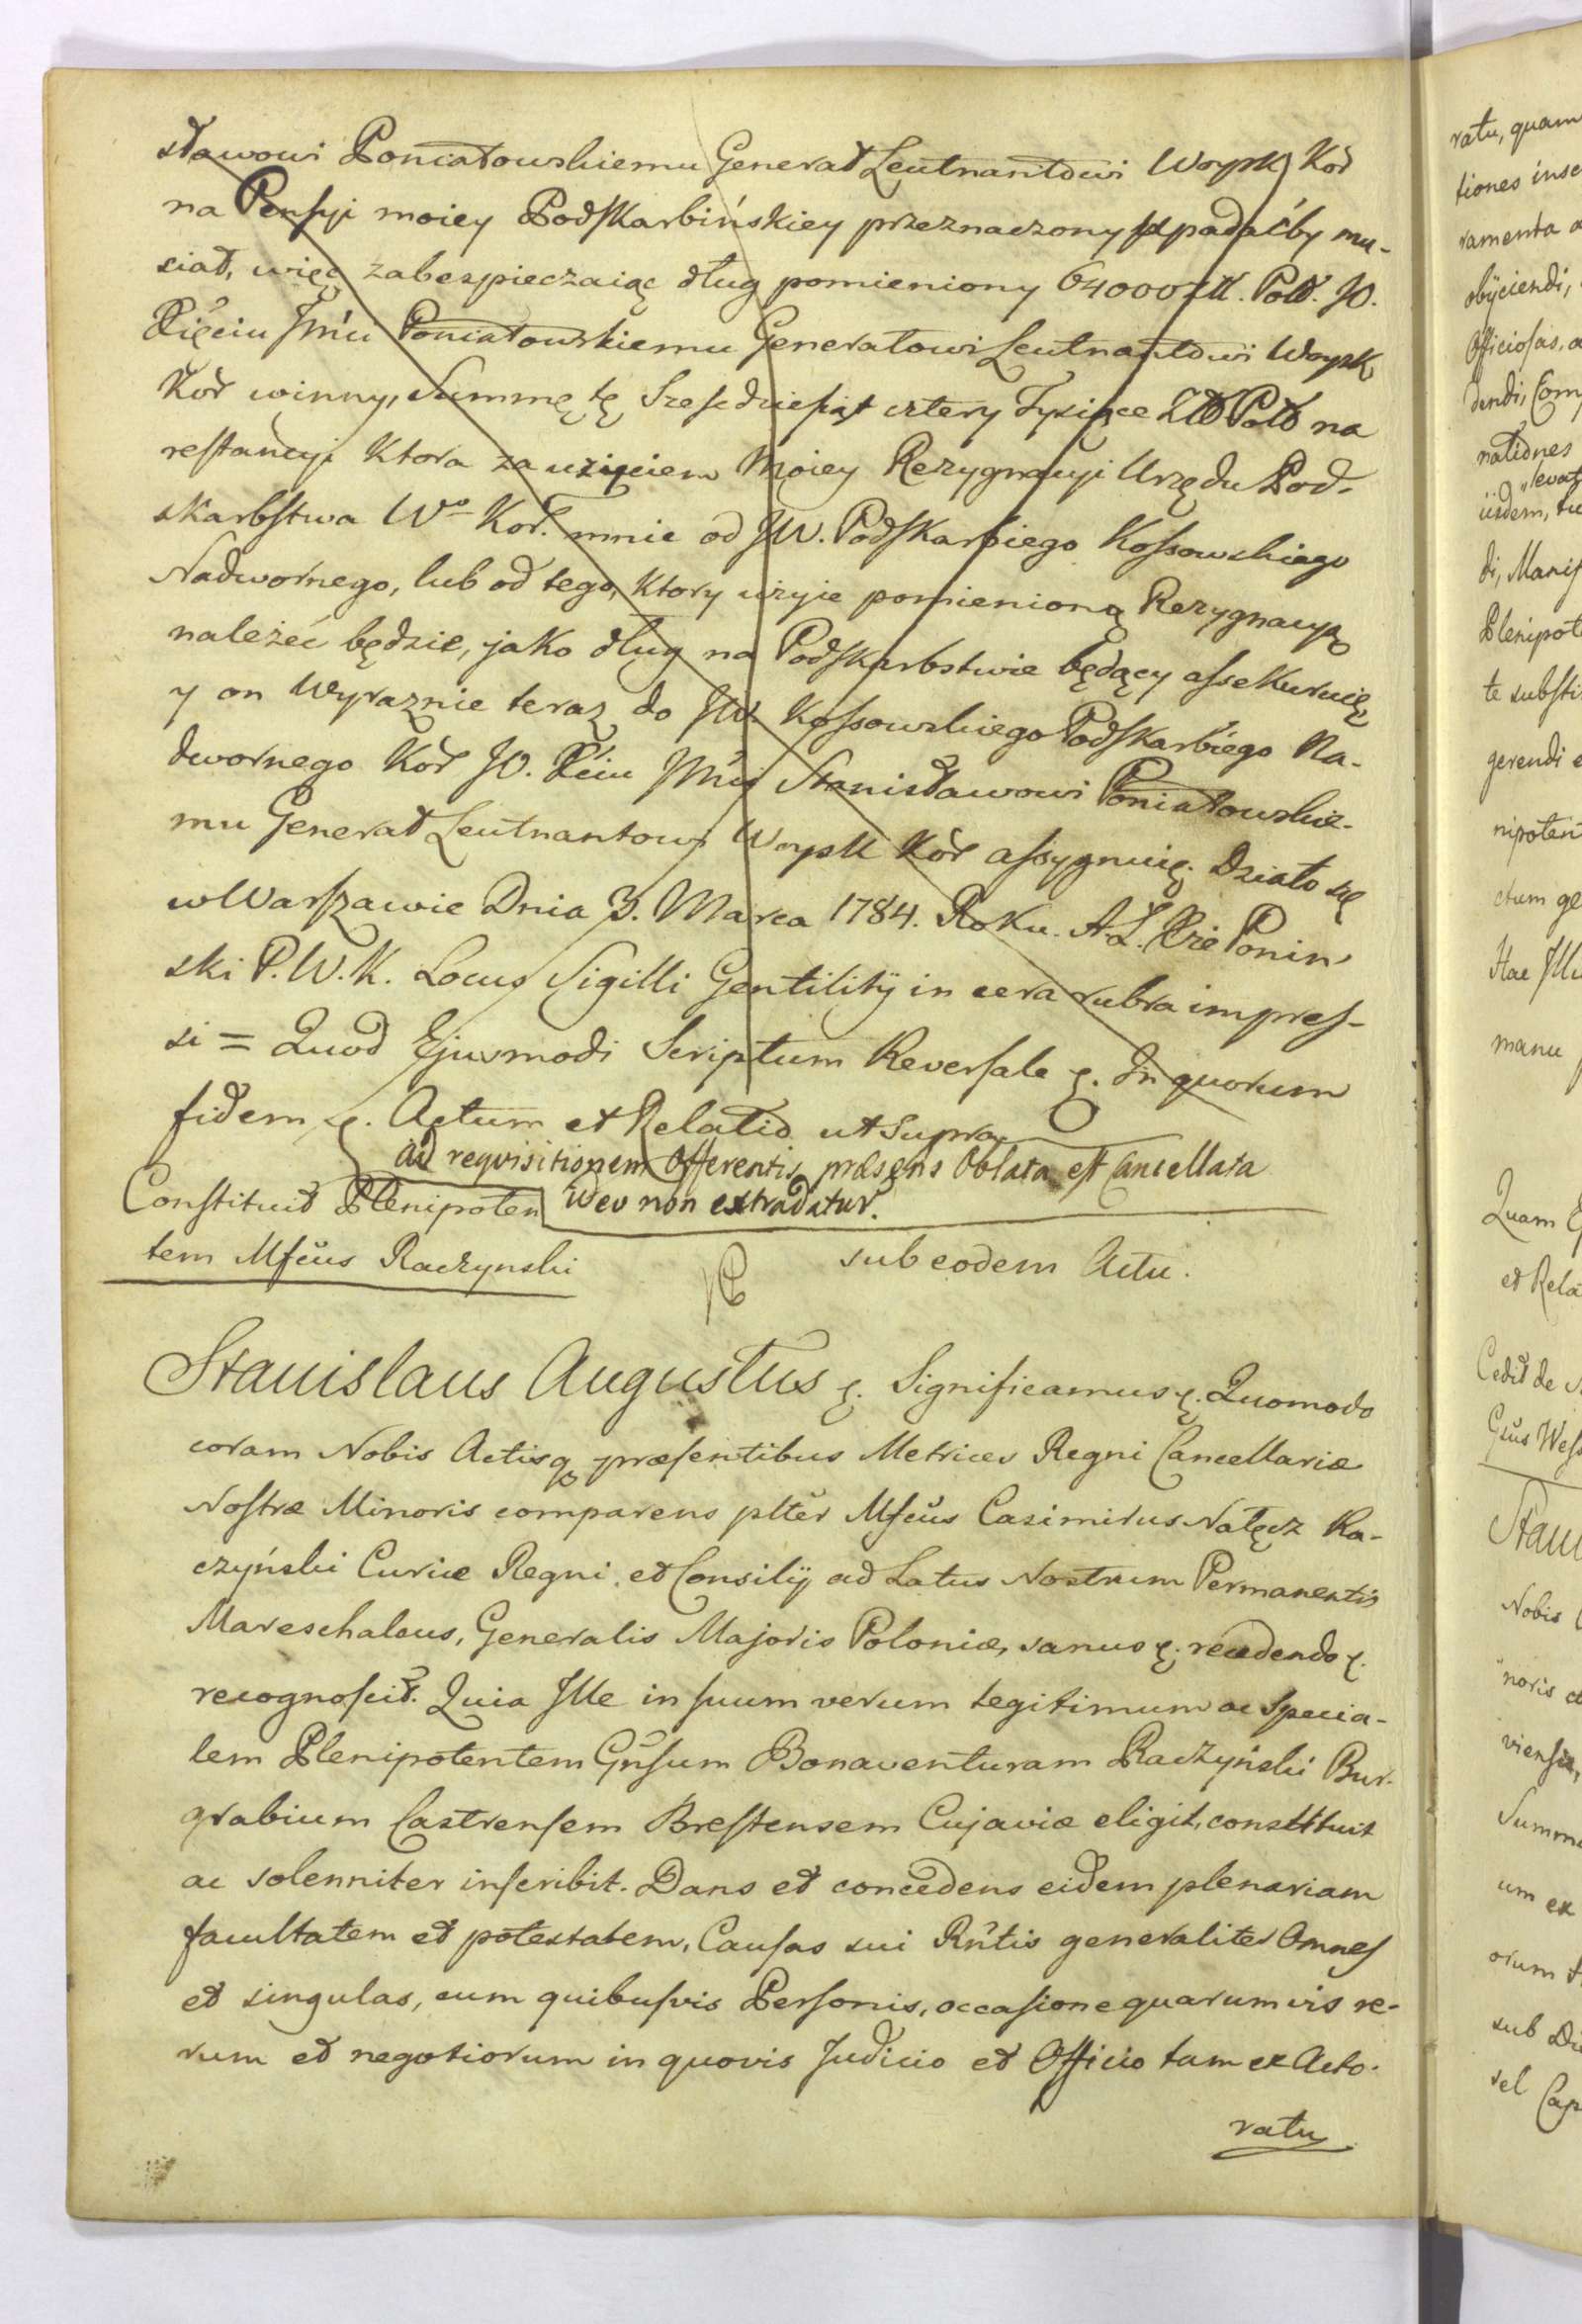 sławowi Poniatowskiemu Generał Leutnantowi Woysk Kor
na Pensyi moiey Podskarbińskiey przeznaczony upadaćby mu-
siał, więc zabespieczaiąc dług pomieniony 64000 zł. Pol. JO.
Xięciu Jmći Poniatowskiemu Generałowi Leutnantowi Woysk
Kor winny, Summę tę Szescdziesiąt cztery Tysiące Zł Pol na
restancyi ktora za uzyciem Moiey Rezygnacyi Urzędu Pod-
skarbstwa Wo Kor. mnie od JW. Podskarbiego Kossowskiego
Nadwornego, lub od tego, ktory użyie pomienioną Rezygnacyą
należeć będzie, jako dług na Podskarbstwie będący assekuruię
y on Wyraznie teraz do JW. Kossowskiego Podskarbiego Na-
dwornego Kor JO. Xciu Jmći Stanisławowi Poniatowskie-
mu Generał Leutnantowi Woysk Kor assygnuię. Działo się
w Warszawie Dnia 3. Marca 1784. Roku. A. Ł. Xże Ponin-
ski P. W. K. Locus Sigilli Gentilitÿ in cera rubra impres-
si = Quod Ejusmodi Scriptum Reversale &. In quorum
fidem &. Actum et Relatio ut supra
ad requisitionem Offerentis præsens Oblata est Cancellata
ideo non extradatur.
Constituit Plenipoten
tem Mfcus Raczynski
sub eodem Actu.
Stanislaus Augustus &. Significamus &. Quomodo
coram Nobis Actisq præsentibus Metrices Regni Cancellariæ
Nostræ Minoris comparens plter Mfcus Casimirus Nałęcz Ra-
czyński Curiæ Regni et Consilÿ ad Latus Nostrum Permanentis
Mareschalcus, Generalis Majoris Poloniæ, sanus &. recedendo &.
recognoscit. Quia Ille in suum verum legitimum ac specia-
lem Plenipotentem Gnsum Bonaventuram Raczyński Bur-
grabium Castrensem Brestensem Cujaviæ eligit, constituit
ac solenniter inscribit. Dans et concedens eidem plenariam
facultatem et potestatem, Causas sui Rntis generaliter Omnes
et singulas, cum quibusvis Personis, occasione quarumvis re-
rum et negotiorum in quovis Judicio et Officio tam ex Acto-
ratu
ratu, quam
tiones inse
ramenta a
obÿciendi,
Officiosas, a
dendi, Com
nationes
levat
iisdem, tu
di, Manif
Plenipot
te substi
gerendi e
nipoten
ctum ge
Hac Illu
manu
Quam E
et Rela
Cedit de
Gsus Wes
Stani
Nobis
noris
viensis,
Summ
um ex
orum
sub Di
vel Cap